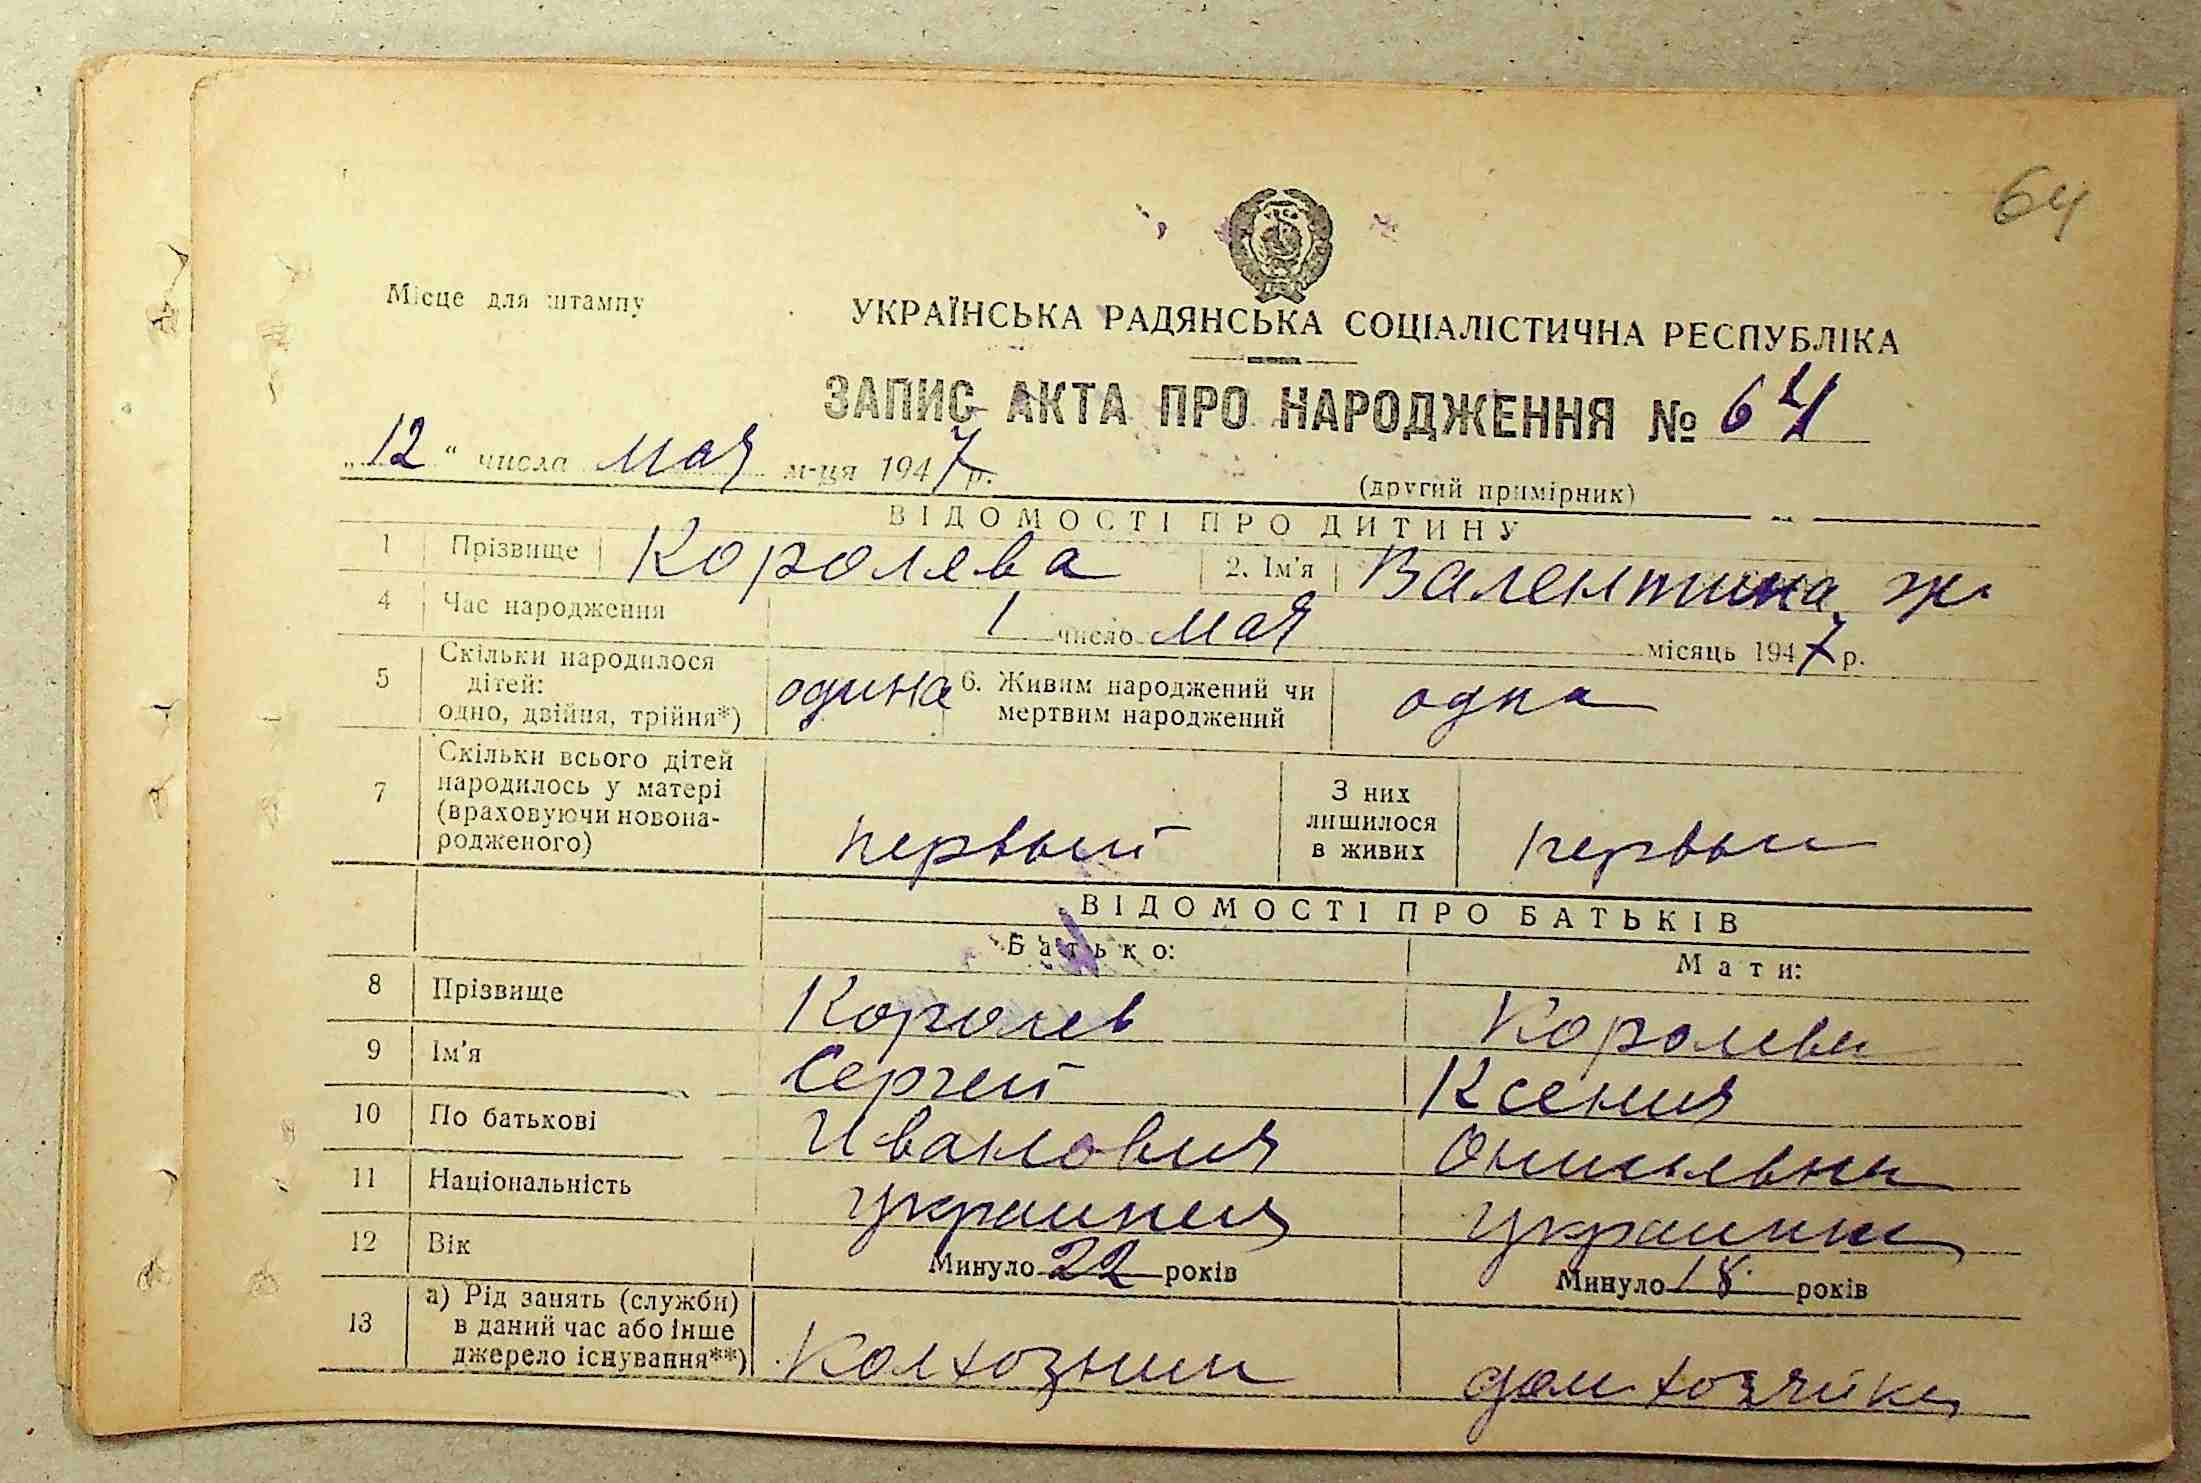 64
Місце для штампу
УКРАЇНСЬКА РАДЯНСЬКА СОЦІАЛІСТИЧНА РЕСПУБЛІКА
ЗАПИС АКТА ПРО НАРОДЖЕННЯ № 64
„12" числа мая м-ця 1947 р.
(другий примірник)
ВІДОМОСТІ ПРО ДИТИНУ
1 Прізвище Королева 2. Ім'я Валентина ж
4 Час народження 1 число мая місяць 1947 р.
5 Скільки народилося дітей: одно, двійня, трійня*) одина 6. Живим народжений чи мертвим народжений одна
7 Скільки всього дітей народилось у матері (враховуючи новонародженого) первый З них лишилося в живих первый
ВІДОМОСТІ ПРО БАТЬКІВ
Батько: Мати:
8 Прізвище Королев Королева
9 Ім'я Сергей Ксения
10 По батькові Иванович
11 Національність украинец украинка
12 Вік Минуло 22 років Минуло 18 років
13 а) Рід занять (служби) в даний час або інше джерело існування**) Колхозник дом хозяйка